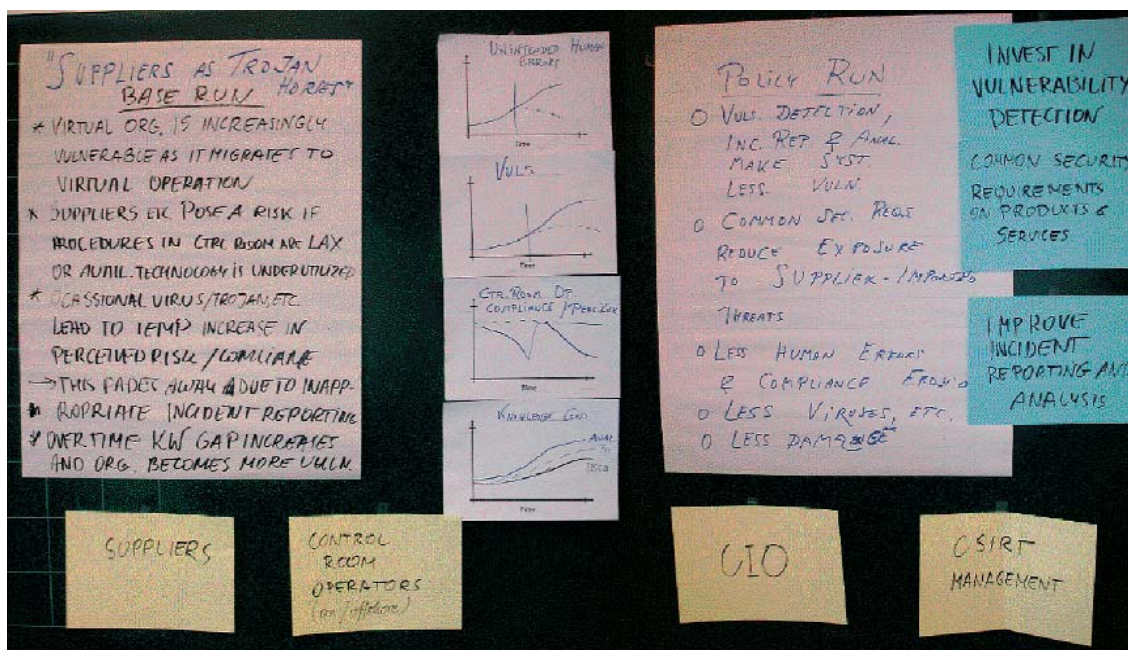 "SUPPLIERS AS TROJAN
HORES"
BASE RUN
* VIRTUAL ORG. IS INCREASINGLY
VULNERABLE AS IT MIGRATES TO
VIRTUAL OPERATION
* SUPPLIERS ETC POSE A RISK IF
PROCEDURES IN CTRL ROOM ARE LAX
OR AVAIL. TECHNOLOGY IS UNDERUTILIZED
* OCASSIONAL VIRUS/TROJAN, ETC.
LEAD TO TEMP INCREASE IN
PERCEIVED RISK/COMLIANE
→ THIS FADES AWAY DUE TO INAPP-
ROPRIATE INCIDENT REPORTING
* OVER TIME KW GAP INCREASES
AND ORG. BECOMES MORE VULN.
UNINTENDED HUMAN
ERRORS
Time
VULS
Time
CTR. ROOM OP.
COMPLIANCE /
Time
KNOWLEDGE GAP
AVAIL
USED
Time
POLICY RUN
O VULS. DETECTION,
INC. REP & ANAL.
MAKE SYST.
LESS VULN.
O COMMON SEC. REQS
REDUCE EXPOSURE
TO SUPPLIER-IMPORTED
THREATS
O LESS HUMAN ERRORS
& COMPLIANCE EROSIO
O LESS VIRUSES, ETC.
O LESS DAMAGE
INVEST IN
VULNERABILITY
DETECTION
COMMON SECURITY
REQUIREMENTS
ON PRODUCTS &
SERVICES
IMPROVE
INCIDENT
REPORTING AND
ANALYSIS
SUPPLIERS
CONTROL
ROOM
OPERATORS
(on/offshore)
CIO
CSIRT
MANAGEMENT